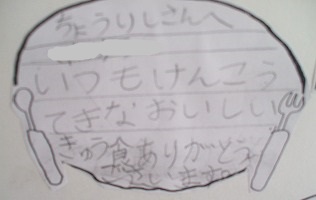 ちょうりしさんへ
いつもけんこう
てきなおいしい
きゅう食ありがとう
ございます。